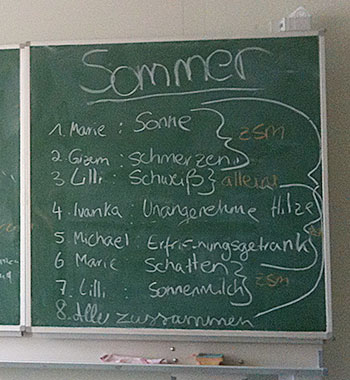 Sommer
1. Marie : Sonne
zsm
2. Gizem : Schmerzen
3 Lilli : Schweiß } allein
4 Ivanka : Unangenehme Hitze
5 Michael : Erfrischungsgetränk
6 Marie : Schatten
zsm
7. Lilli : Sonnenmilch
8. Alle zusammen